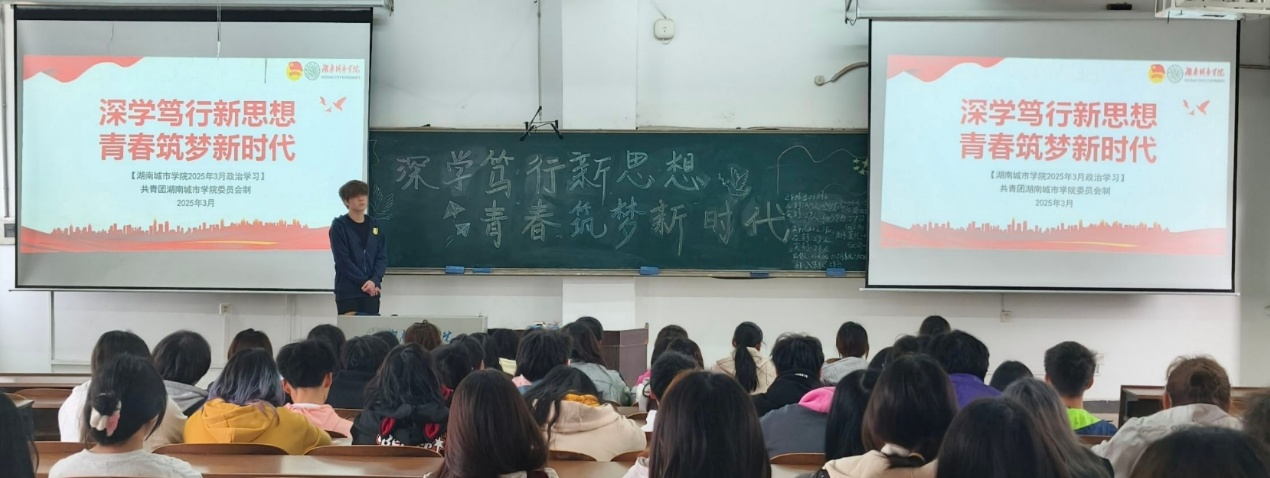 湖南城市学院
深学笃行新思想
青春筑梦新时代
【湖南城市学院2025年3月政治学习】
共青团湖南城市学院委员会制
2025年3月
深学笃行新思想
青春筑梦新时代
湖南城市学院
深学笃行新思想
青春筑梦新时代
【湖南城市学院2025年3月政治学习】
共青团湖南城市学院委员会制
2025年3月